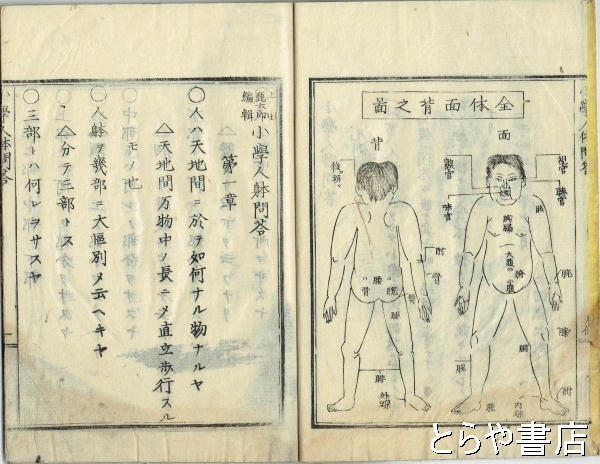 全体面背之圖
面
背
視官
聴官
嗅官
味官
胸
大腹
小腹
臍
腕
肘
腰
臀
外踝
内踝
小學人躰問答
上田
鹿太郎
編輯
小學人躰問答
第一章
○人ハ天地間ニ於テ如何ナル物ナルヤ
△天地間万物中ノ長ニメ直立歩行スル
モノ也
○人躰ヲ幾部ニ大區別メ云ヘキヤ
△分テ三部トス
○三部トハ何レヲサスヤ
小學人躰問答
とらや書店